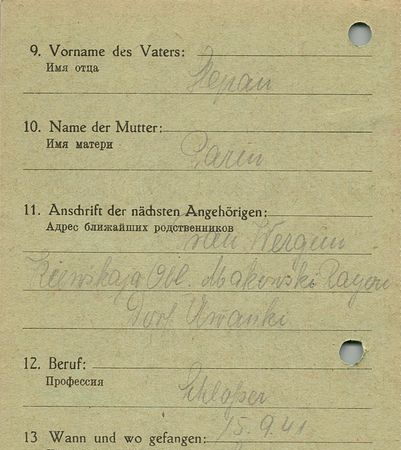 9. Vorname des Vaters:
Имя отца
Stepan
10. Name der Mutter:
Имя матери
11. Anschrift der nächsten Angehörigen:
Адрес ближайших родственников
Wergun
Kiewskaja Obl. Makowski Rayon
Dorf Iwanki
12. Beruf:
Профессия
Schloßer
13 Wann und wo gefangen: 15.9.41